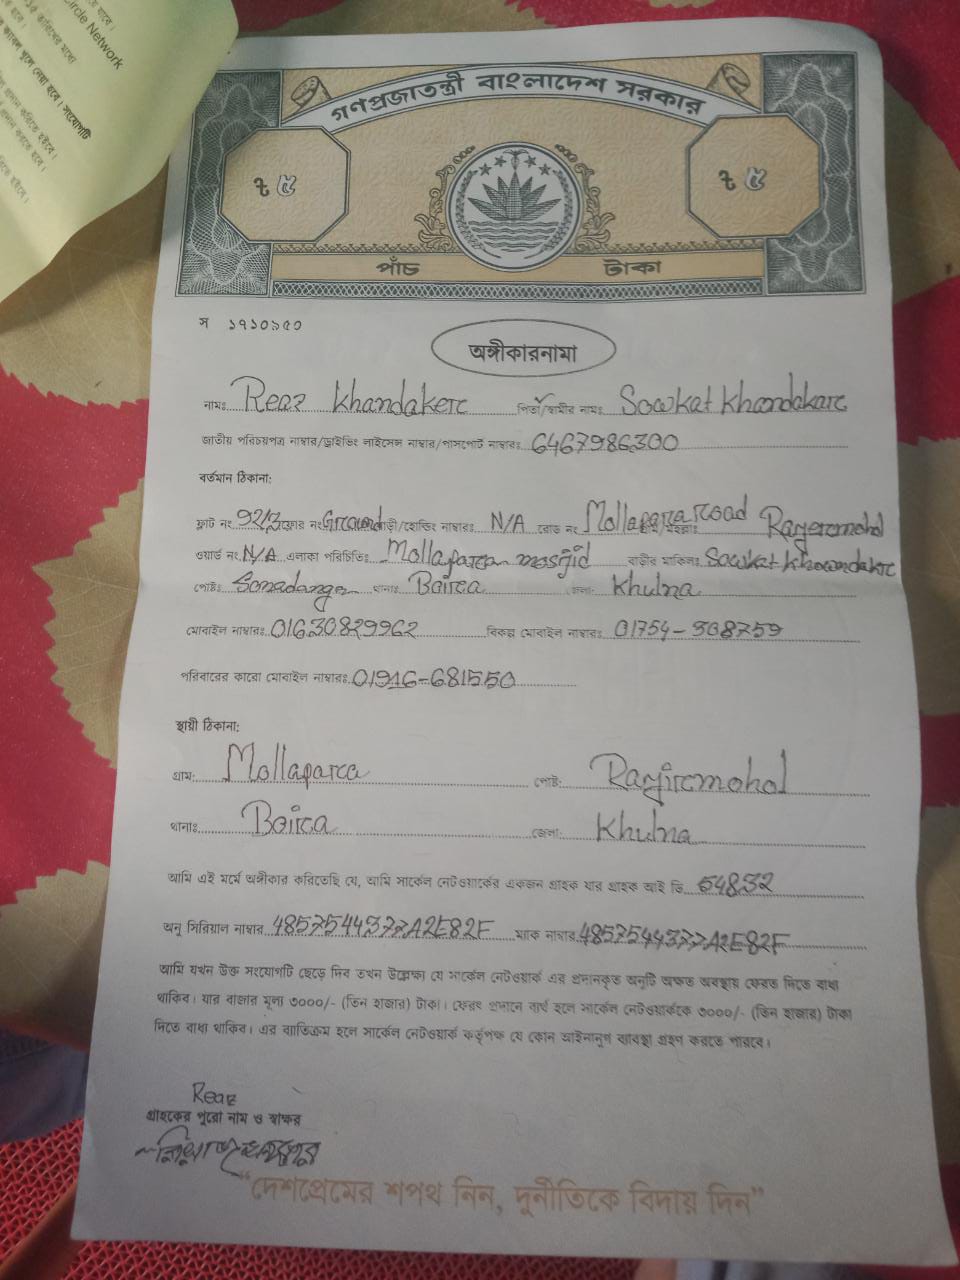 Circle Network
গণপ্রজাতন্ত্রী বাংলাদেশ সরকার
৳ ৫ ৳ ৫
পাঁচ টাকা
স ১৭১০৯৫০
অঙ্গীকারনামা
নামঃ Reaz Khandaker পিতা/স্বামীর নামঃ Sowkat Khandakar
জাতীয় পরিচয়পত্র নাম্বার/ড্রাইভিং লাইসেন্স নাম্বার/পাসপোর্ট নাম্বারঃ 6467986300
বর্তমান ঠিকানা:
ফ্লাট নং ফ্লোর নং Ground বাড়ী/হোল্ডিং নাম্বারঃ N/A রোড নং Mollapara road
ওয়ার্ড নং N/A এলাকা পরিচিতিঃ Mollapara masjid বাড়ীর মালিকঃ Sowkat Khowndaker
পোষ্টঃ Sonadanga থানাঃ Boira জেলা: Khulna
মোবাইল নাম্বারঃ 01630829962 বিকল্প মোবাইল নাম্বারঃ 01754-308759
পরিবারের কারো মোবাইল নাম্বারঃ 01916-681550
স্থায়ী ঠিকানা:
গ্রাম: Mollapara পোষ্ট: Rayermohol
থানাঃ Boira জেলা: Khulna
আমি এই মর্মে অঙ্গীকার করিতেছি যে, আমি সার্কেল নেটওয়ার্কের একজন গ্রাহক যার গ্রাহক আই ডি 54832
অনু সিরিয়াল নাম্বার 48575444377A2E82F ম্যাক নাম্বার 48575444377A2E82F
আমি যখন উক্ত সংযোগটি ছেড়ে দিব তখন উল্লেক্ষা যে সার্কেল নেটওয়ার্ক এর প্রদানকৃত অনুটি অক্ষত অবস্থায় ফেরত দিতে বাধ্য
থাকিব। যার বাজার মূল্য ৩০০০/- (তিন হাজার) টাকা। ফেরৎ প্রদানে ব্যর্থ হলে সার্কেল নেটওয়ার্ককে ৩০০০/- (তিন হাজার) টাকা
দিতে বাধ্য থাকিব। এর ব্যতিক্রম হলে সার্কেল নেটওয়ার্ক কর্তৃপক্ষ যে কোন আইনানুগ ব্যবস্থা গ্রহণ করতে পারবে।
Reaz
গ্রাহকের পুরো নাম ও স্বাক্ষর
"দেশপ্রেমের শপথ নিন, দুর্নীতিকে বিদায় দিন"